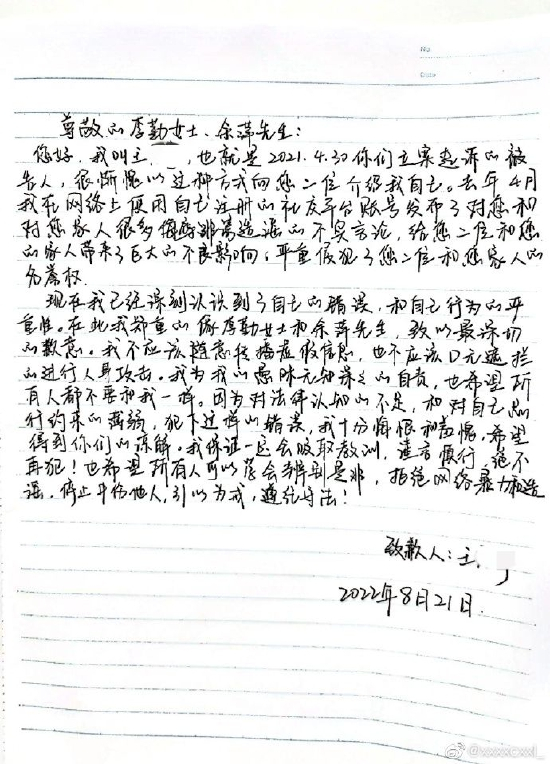 No.
Date
尊敬的李勤女士、余萍先生:
您好,我叫王 ,也就是2021.4.30你们立案起诉的被
告人,很惭愧以这种方式向您二位介绍我自己。去年4月
我在网络上使用自己注册的社交平台账号发布了对您和
对您家人很多侮辱诽谤造谣的不实言论,给您二位和您
的家人带来了巨大的不良影响,严重侵犯了您二位和您家人的
名誉权.
现在我已经深刻认识到了自己的错误,和自己行为的严
重性。在此我郑重的像李勤女士和余萍先生,致以最深切
的歉意。我不应该随意传播虚假信息,也不应该口无遮拦
的进行人身攻击。我为我的愚昧无知深之的自责,也希望所
有人都不要和我一样。因为对法律认知的不足,和对自己
行约束的薄弱,犯下这样的错误,我十分悔恨和羞愧,希望
得到你们的谅解。我保证一定会吸取教训,谨言慎行,绝不
再犯!也希望所有人可以学会辨别是非,拒绝网络暴力和造
谣,停止中伤他人,引以为戒,遵纪守法!
致歉人:王
2022年8月21日.
@xxxxcxxl_